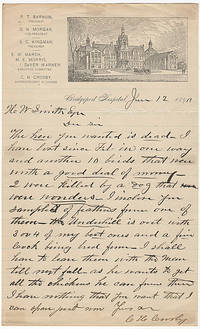 P. T. BARNUM,
PRESIDENT
D. H. MORGAN,
VICE-PRESIDENT
S. C. KINGMAN,
TREASURER
W. MARSH,
N. E. MORRIS,
J. DAVER WARNER
EXECUTIVE COMMITTEE
C. H. CROSBY,
Bridgeport Hospital, Jan 12 189
H W Smith Esqr
Dr sir
The hen you wanted is dead I
have lost since Fall in one way
and another 10 birds that were
worth a good deal of money
2 were killed by a dog that
were wonders. I inclose you
samples of feathers from one of
them. Mr Underhill is over with
3 or 4 of my best ones and a fine
Cock being bred from I shall
have to leave them with the man
till next fall as he wants to get
all the chickens he can from them
I have nothing that you want that I
can spare just now Yours
C H Crosby